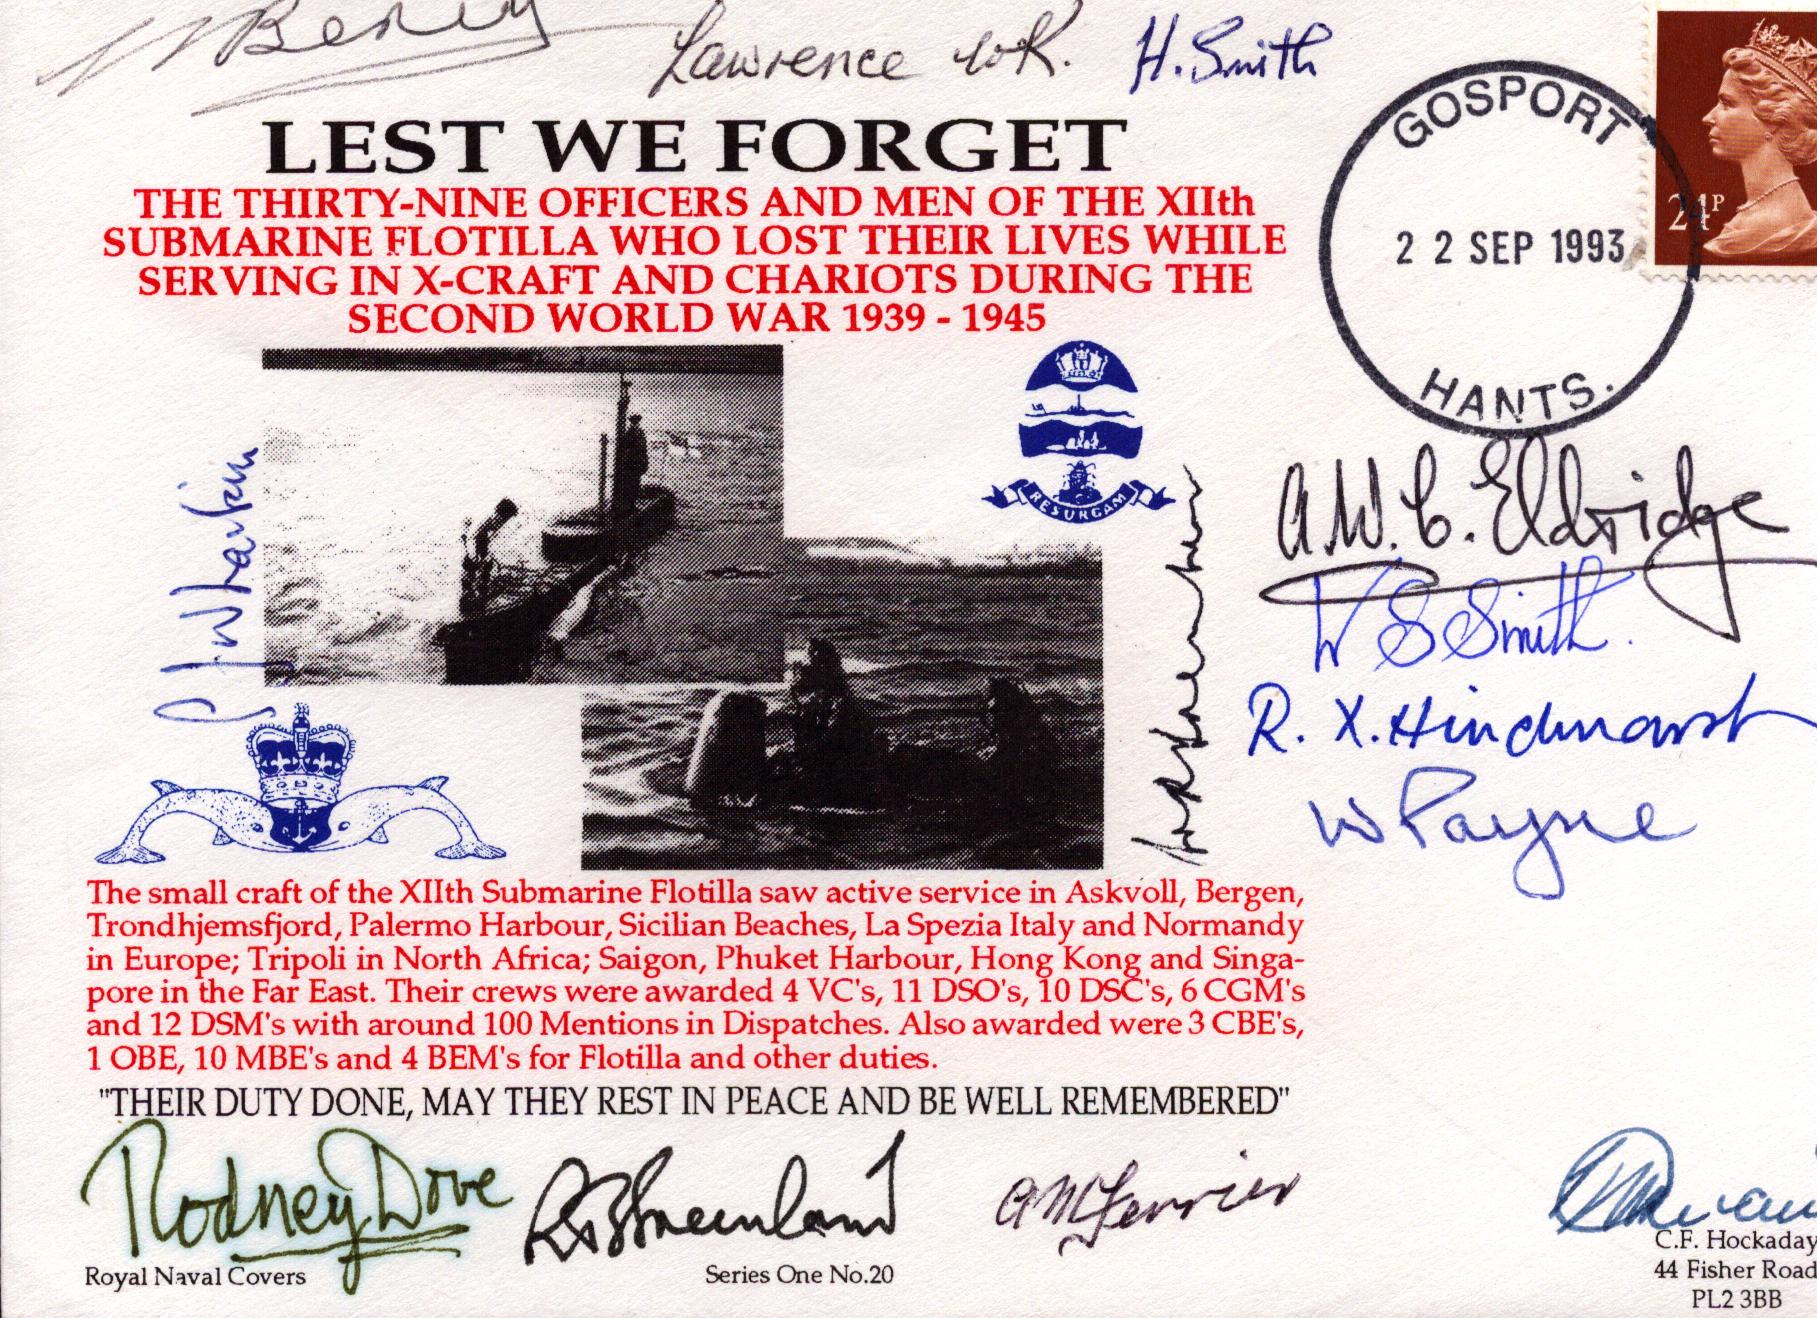 Lawrence WR. H. Smith
GOSPORT
24P
22 SEP 1993
HANTS.
LEST WE FORGET
THE THIRTY-NINE OFFICERS AND MEN OF THE XIIth
SUBMARINE FLOTILLA WHO LOST THEIR LIVES WHILE
SERVING IN X-CRAFT AND CHARIOTS DURING THE
SECOND WORLD WAR 1939 - 1945
RESURGAM
A.W.C. Eldridge
W S Smith.
R. X. Hindmarsh
W Payne
The small craft of the XIIth Submarine Flotilla saw active service in Askvoll, Bergen,
Trondhjemsfjord, Palermo Harbour, Sicilian Beaches, La Spezia Italy and Normandy
in Europe; Tripoli in North Africa; Saigon, Phuket Harbour, Hong Kong and Singa-
pore in the Far East. Their crews were awarded 4 VC's, 11 DSO's, 10 DSC's, 6 CGM's
and 12 DSM's with around 100 Mentions in Dispatches. Also awarded were 3 CBE's,
1 OBE, 10 MBE's and 4 BEM's for Flotilla and other duties.
"THEIR DUTY DONE, MAY THEY REST IN PEACE AND BE WELL REMEMBERED"
Rodney Dove
A M Ferrier
Royal Naval Covers
Series One No.20
C.F. Hockaday
44 Fisher Road
PL2 3BB